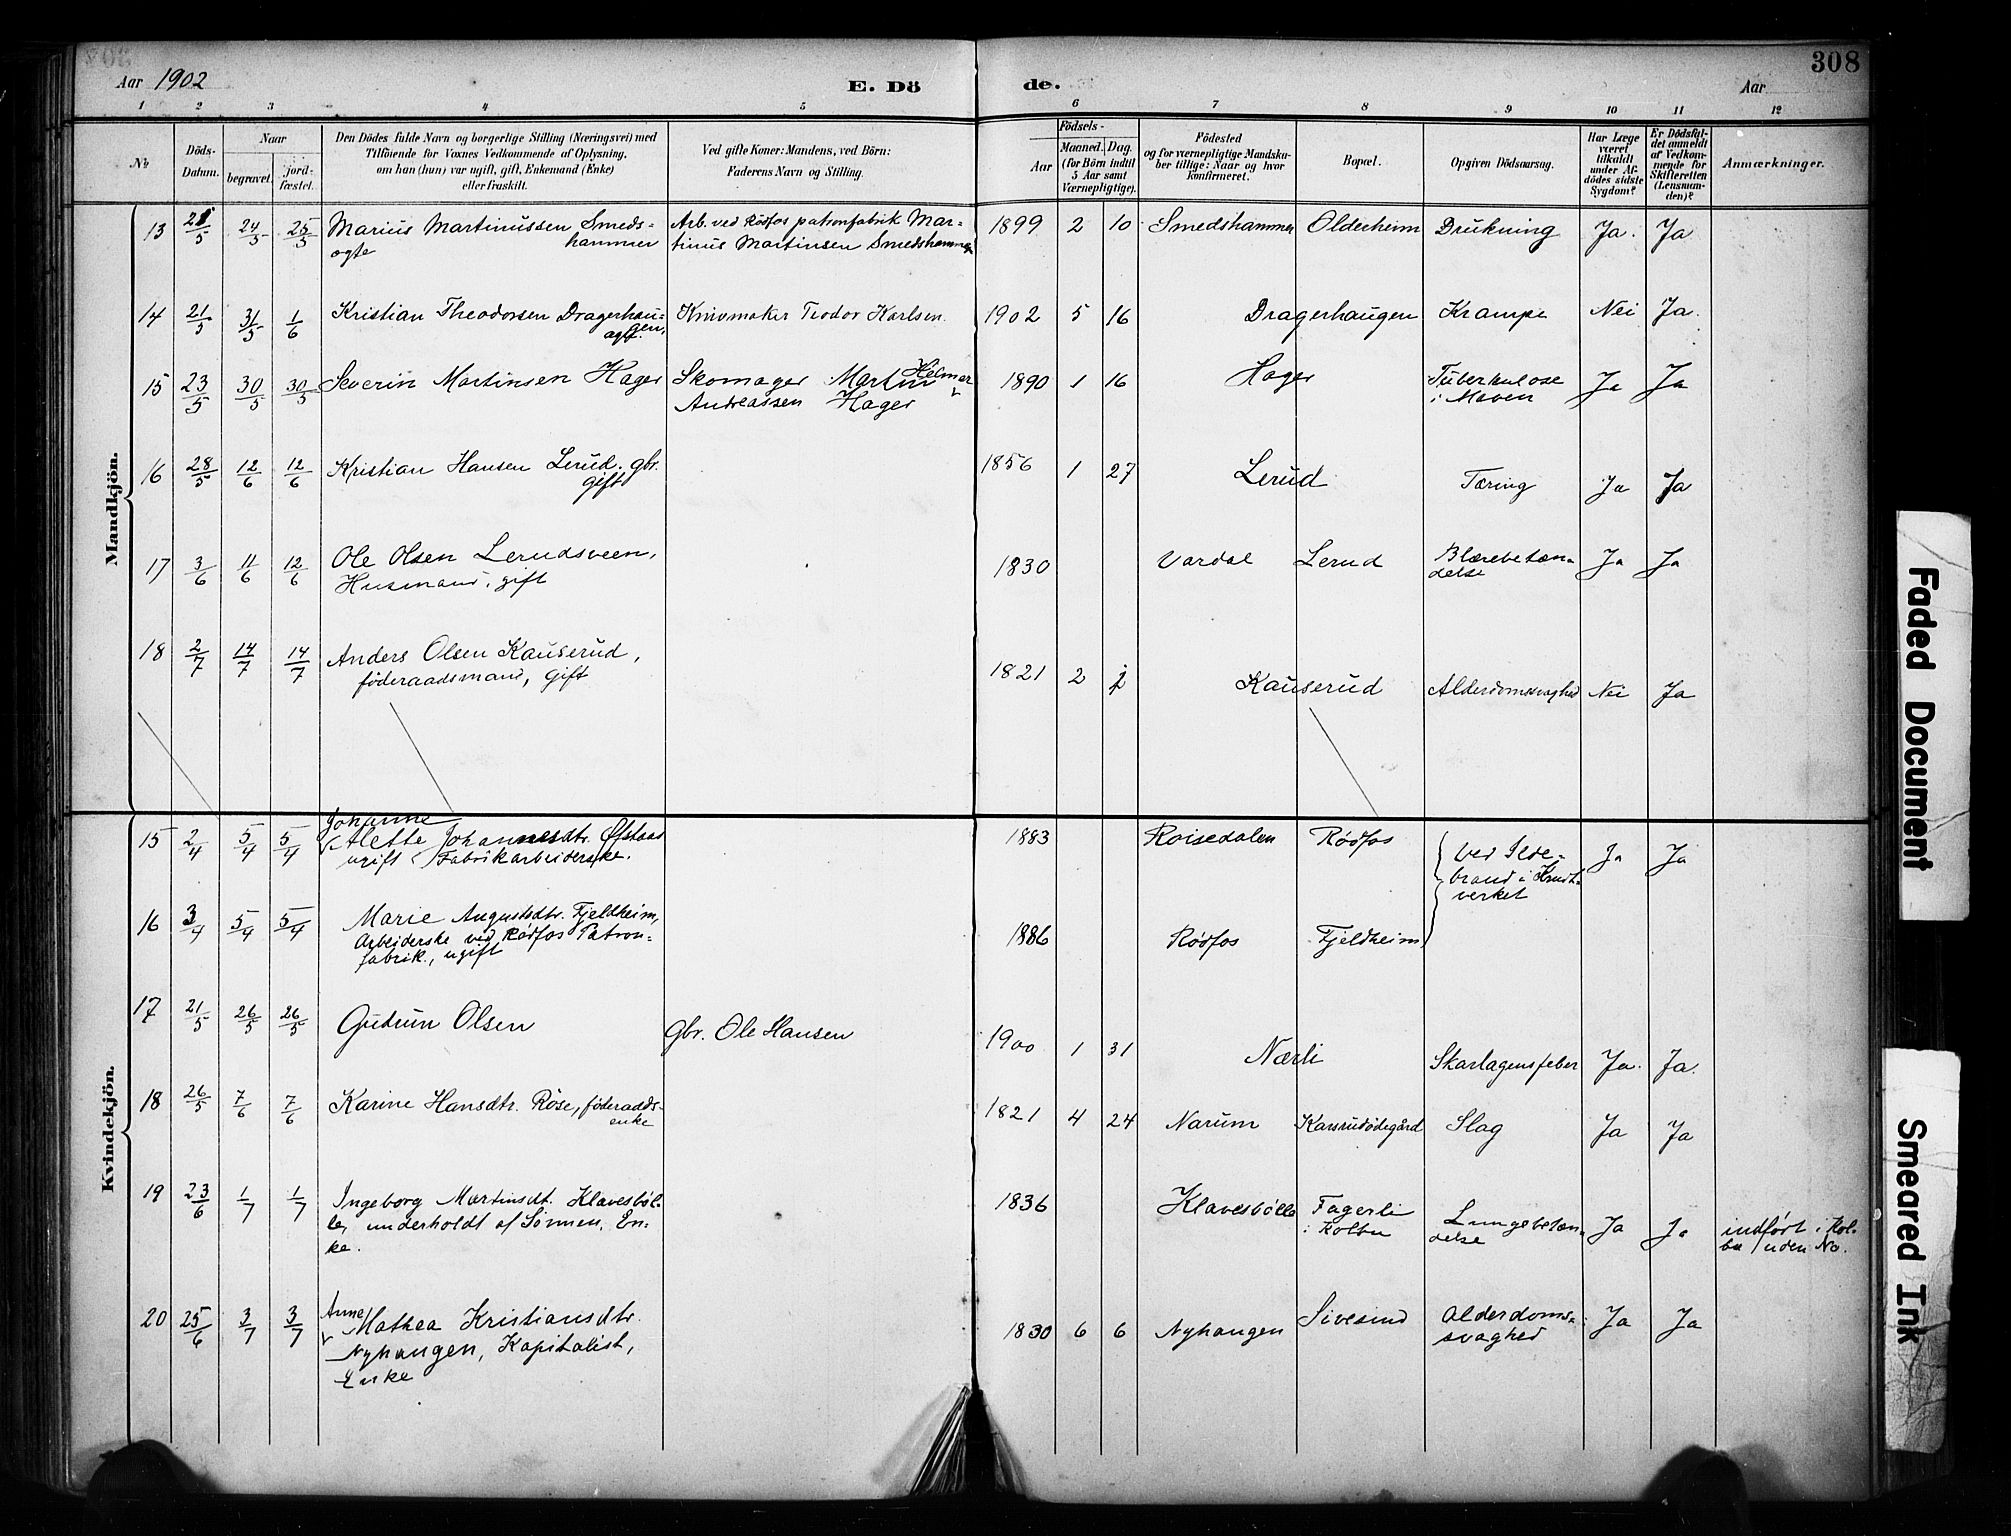 308
Aar 1902
E. Dö
de.
Aar
1 2 3 4 5 6 7 8 9 10 11 12
No
Döds-
Datum.
Naar
begravet.
jord-
fæstet.
Den Dödes fulde Navn og borgerlige Stilling (Næringsvei) med
Tilföiende for Voxnes Vedkommende af Oplysning,
om han (hun) var ugift, gift, Enkemand (Enke)
eller fraskilt.
Ved gifte Koner: Mandens, ved Börn:
Faderens Navn og Stilling.
Födsels-
Aar
Maaned.
Dag.
(for Börn indtil
5 Aar samt
Værnepligtige).
Födested
og for værnepligtige Mandska-
ber tillige: Naar og hvor
konfirmeret.
Bopæl.
Opgiven Dödsaarsag.
Har Læge
været
tilkaldt
under Af-
dödes sidste
Sygdom?
Er Dödsfal-
det anmeldt
af Vedkom-
mende for
Skifteretten
(Lensman-
den)?
Anmærkninger.
Mandkjön.
13 21/5 24/5 25/5 Marius Martinussen Smeds- Arb. ved Rødfos patronfabrik Mar- 1899 2 10 Smedshammer Olderheim Drukning Ja. Ja
hammer tinus Martinsen Smedshammer
ægte
14 21/5 31/5 1/6 Kristian Theodorsen Dragerhau- Knivmaker Teodor Karlsen. 1902 5 16 Dragerhaugen Krampe Nei Ja.
gen, ægt.
15 23/5 30/5 30/5 Severin Martinsen Hager Skomager Martin Helmer 1890 1 16 Hager Tuberkulose Ja Ja
Andreassen Hager i Maven
16 28/5 12/6 12/6 Kristian Hansen Lerud. gbr. 1856 1 27 Lerud Tæring Ja Ja
gift
17 3/6 11/6 12/6 Ole Olsen Lerudsveen, 1830 Vardal Lerud Blærebetæn- Ja Ja
Husmand, gift delse
18 2/7 14/7 14/7 Anders Olsen Kauserud, 1821 2 Kauserud Alderdomssvaghed Nei Ja
føderaadsmand, gift
Kvindekjön.
Johanne
15 2/4 5/4 5/4 Alette Johannesdtr. Øfstaas 1883 Roisedalen Rødfos Ved Ilde- Ja Ja
ugift Fabrikarbeiderske. brand i Krudt-
verket
16 3/4 5/4 5/4 Marie Augustsdtr. Fjeldheim, 1886 Rødfos Fjeldheim
Arbeiderske ved Rødfos Patron-
fabrik, ugift
17 21/5 26/5 26/5 Gudrun Olsen Gbr. Ole Hansen 1900 1 31 Nærli Skarlagensfeber Ja. Ja.
18 26/5 7/6 7/6 Karine Hansdtr. Røse, føderaads- 1821 4 24 Narum Karsrudødegård Slag Ja Ja
enke
19 23/6 1/7 1/7 Ingeborg Martinsdt. Klavesbøl- 1836 Klavesbølle Fagerli Lungebetæn- Ja Ja indført i Kol-
le, underholdt af Sønnen, En- i Kolbu delse bu uden No.
ke.
20 25/6 3/7 3/7 Anne Mathea Kristiansdtr. 1830 6 6 Nyhaugen Sivesind Alderdoms- Ja Ja
Nyhaugen, Kapitalist, svaghed
Enke
Faded Document
Smeared Ink